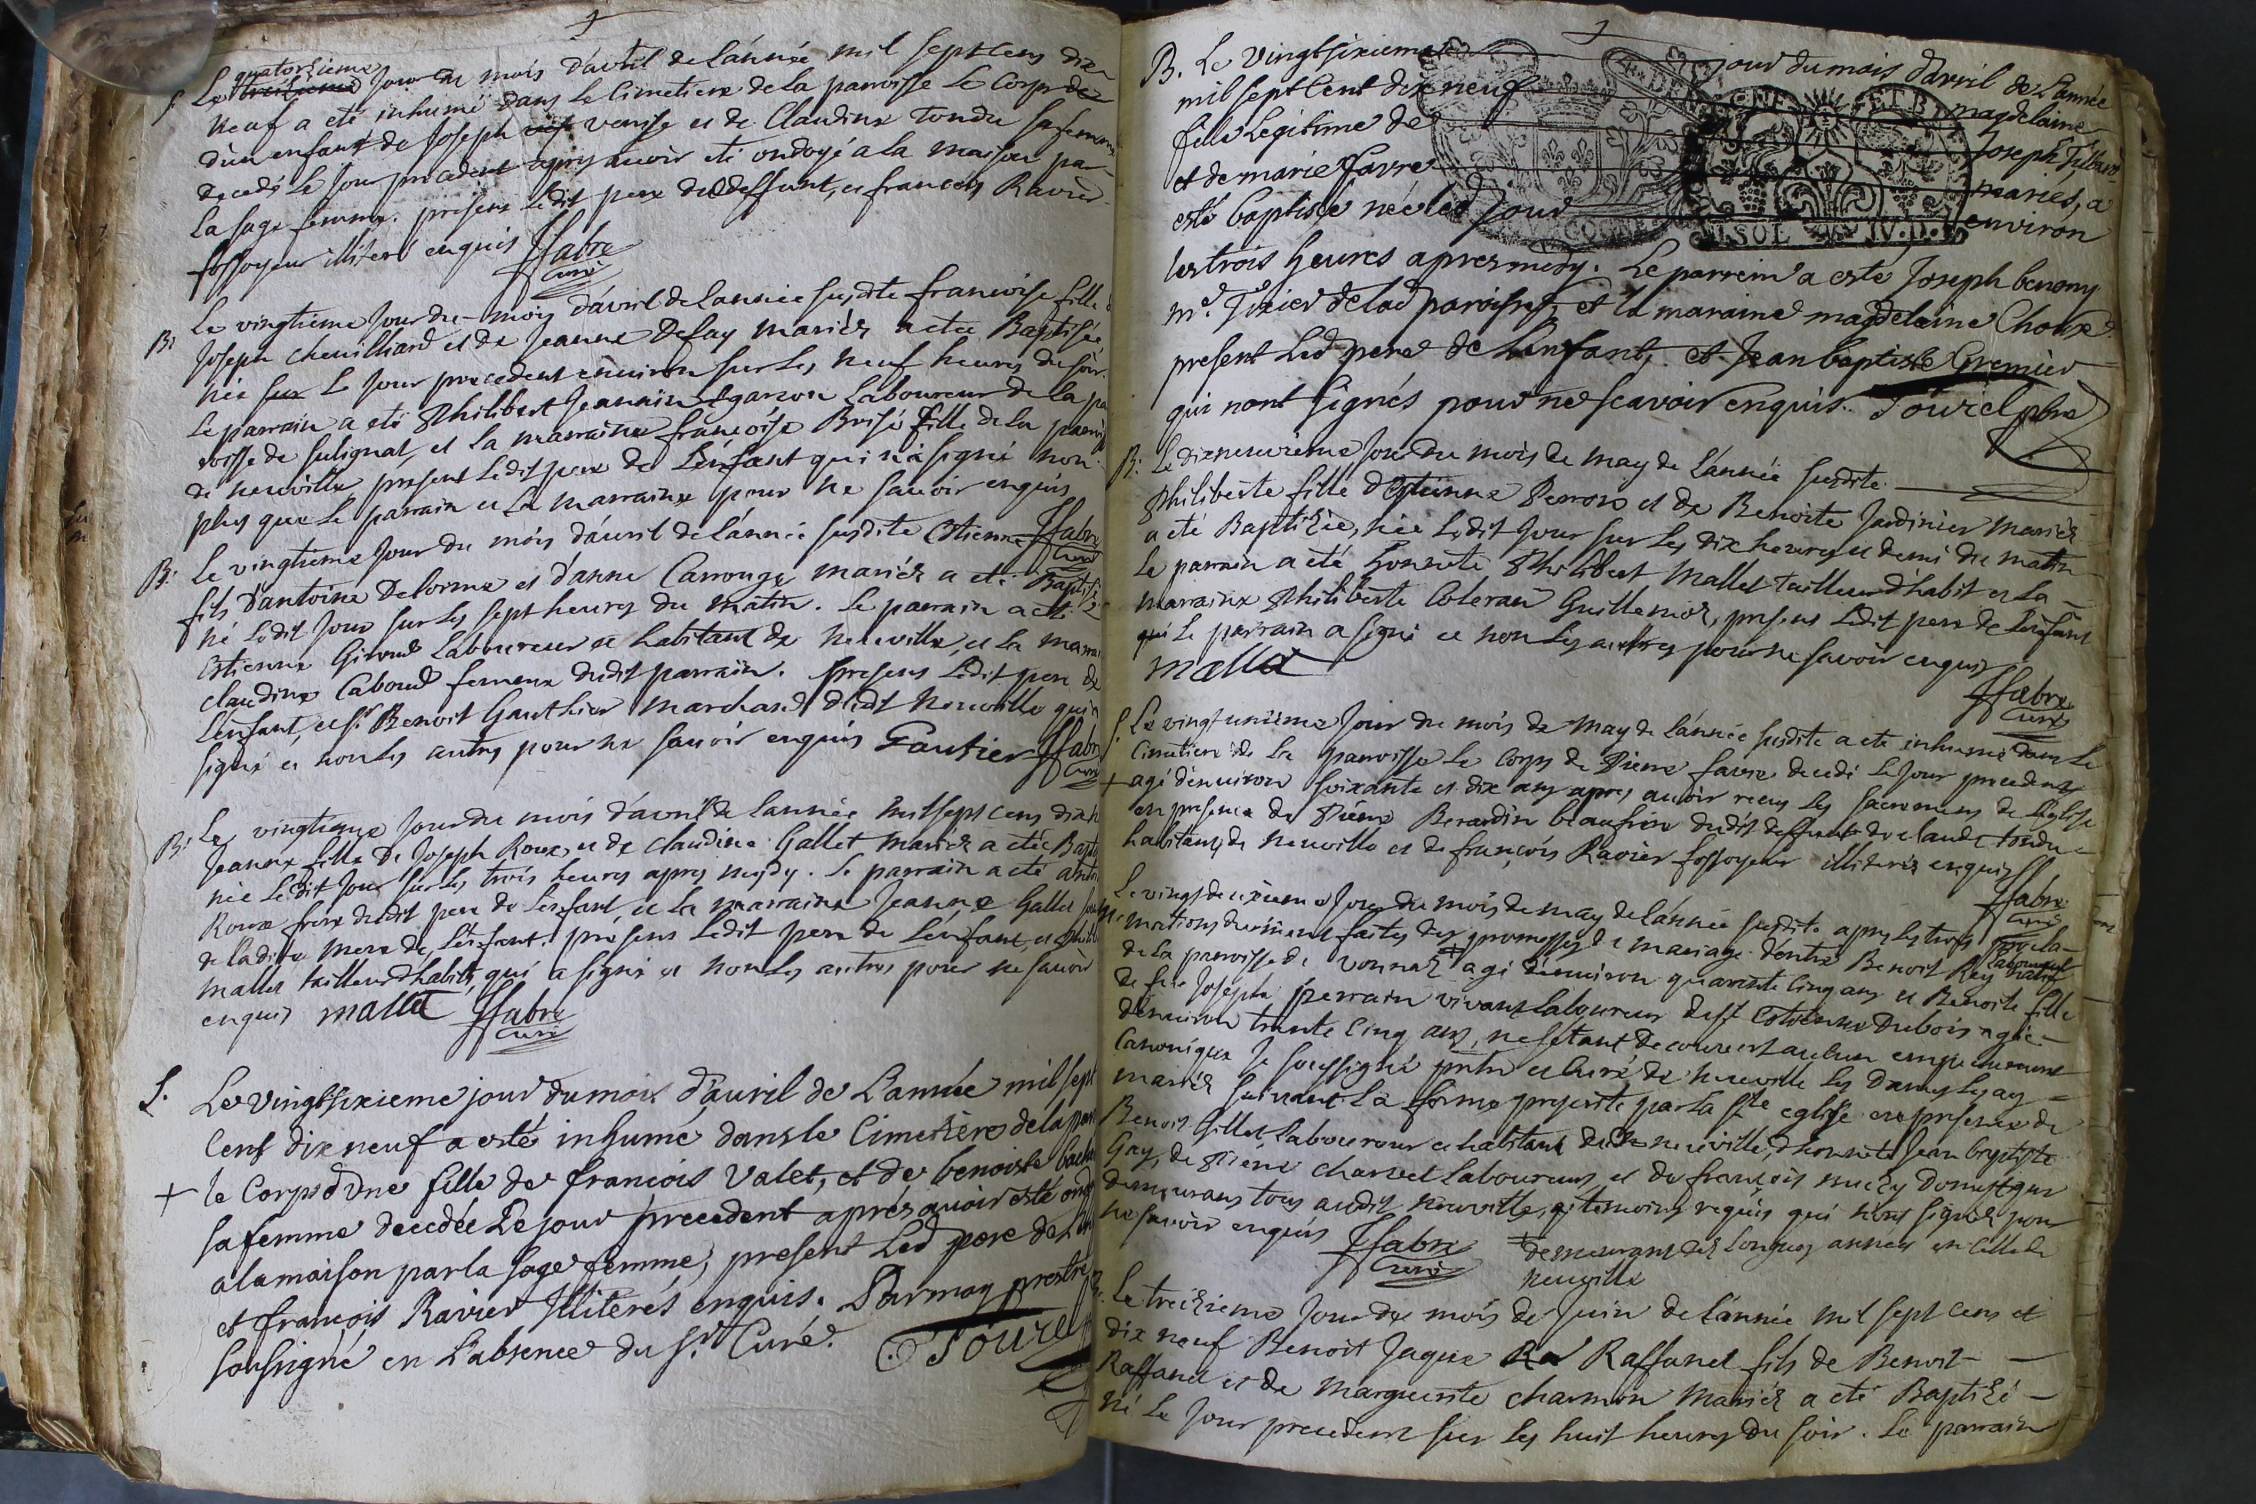 S. Le treizieme quatorzieme Jour du mois d'avril de l'année mil sept cens dix
neuf a eté inhumé dans le Cimetiere de la paroisse le Corps
d'un enfant de Joseph venise et de Claudine Tondu sa femme
decedé le Jour precedent apres avoir eté ondoyé a la maison par
la sage femme. presens ledit pere du deffunt, et francois Ravier
fossoyeur illiteré enquis ffabre
curé
B: Le vingtieme Jour du moy d'avril de l'année susdite francoise fille
Joseph Cheuilliard et de Jeanne Delay mariés a eté Baptisée
née le Jour precedent environ sur les neuf heures du soir.
Le parrain a eté Philibert Jeannin garcon Laboureur de la pa
roisse de sulignat, et la marraine francoise Brisé fille de la paroiss
de neuville present ledit pere de L'enfant qui n'a signé non
plus que le parrain et La marraine pour ne savoir enquis
ffabre
curé
B: Le vingtieme Jour du mois d'avril de l'année susdite Estienne
fils d'antoine Delorme et d'anne Carrouge mariés a eté Baptisé
né ledit Jour sur les sept heures du matin. Le parrain a eté
Estienne Giroud Laboureur et habitant de neuville, et la marrai
claudine Caboud femme dudit parrain. presens ledit pere de
L'enfant, et sr. Benoit Gauthier marchand dudit neuville qui
signé et non les autres pour ne savoir enquis Gautier ffabre
curé
B: Le vingtieme Jour du mois d'avril de l'année mil sept cens dix
Jeanne fille de Joseph Roux, et de claudine Gallet mariés a eté Bapti
née ledit Jour sur les trois heures apres mydy. Le parrain a eté
Roux frere dudit pere de L'enfant et la marraine Jeanne Gallet
de ladite mere de L'enfant. presens ledit pere de L'enfant, et
mallet tailleur d'habits, qui a signé et non les autres pour ne savoir
enquis mallet ffabre
curé
S. Le vingtsixieme jour du mois d'auril de L'année mil sept
cent dix neuf a esté inhumé dans le Cimetiere de la par
+ le Corps d'Une fille de francois Valet, et de benoiste
sa femme decedée Le jour precedent aprés auoir esté ond
a la maison par la sage femme, present Led pere de L'en
et francois Ravier Illiterés enquis. Par moy prestre
soussigné en L'absence du sr. Curé. Touzel
B. Le Vingtsixieme jour du mois d'avril de L'année
mil sept Cent dix neuf magdelaine
fille Legitime de Joseph
et de marie favre mariés, a
esté baptisée née led jour environ
les trois heures apres midy. Le parrein a esté Joseph benony
me. Tixier de lad paroisse, et la maraine magdelaine Choux
present Led pere de Lenfant, et Jean baptiste Gremier
qui nont signés pour ne scavoir enquis. Touzel pbre
B: Le dixneuvieme Jour du mois de may de l'année susdite
Philiberte fille d'Estienne Perrox et de Benoite Jardinier mariés
a eté Baptisée, née ledit Jour sur les dix heures et demi du matin
le parrain a eté honnete Philibert Mallet tailleur d'habit et la
marraine Philiberte Guillemot, presens ledit pere de L'enfant
qui le parrain a signé et non les autres pour ne savoir enquis
mallet
ffabre
curé
S. Le vingtunieme Jour du mois de may de l'année susdite a eté inhumé dans le
Cimetiere de la paroisse le corps de Pierre favre decedé le Jour precedent
+ agé d'environ soixante et dix ans apres avoir receu les sacremens de L'eglise
en presence de Pierre Berardin beaufrere dudit deffunt de claude tondu
habitans de neuville et de francois Ravier fossoyeur illiterés enquis
ffabre
curé
M: Le vingtdeuxieme Jour du mois de may de l'année susdite apres les trois procla-
mations duement faites des promesses de mariage d'entre Benoit Rey laboureur
de la paroisse de vonnas + agé d'environ quarente cinq ans et Benoite fille
de feu Joseph perrain vivant laboureur et Estiennette Dubois agée
d'environ trente cinq ans, ne s'etant decouvert aucun empechement
canonique Je soussigné pretre et curé de neuville les
mariés suivant la forme prescrite par la ste eglise en presence de
Benoit Gillet, Laboureur et habitant dudit neuville, d'honnete Jean baptiste
Gay, de Pierre charvet Laboureur, et de francois domestique
demeurans tous audit neuville, temoins requis qui n'ont signés pour
ne savoir enquis ffabre + demeurant des longues années en celle de
curé neuville
Le treizieme Jour de mois de Juin de l'année mil sept cens et
dix neuf Benoit Jaque Raffanel fils de Benoit
Raffanel et de marguerite charmon mariés a eté Baptisé
né Le Jour precedent sur les huit heures du soir. Le parrain